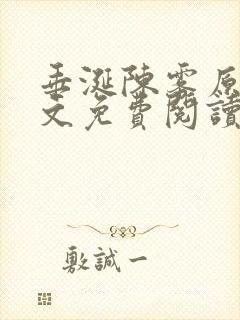 垂涎陳雾原
文免費閱讀
敷誠一